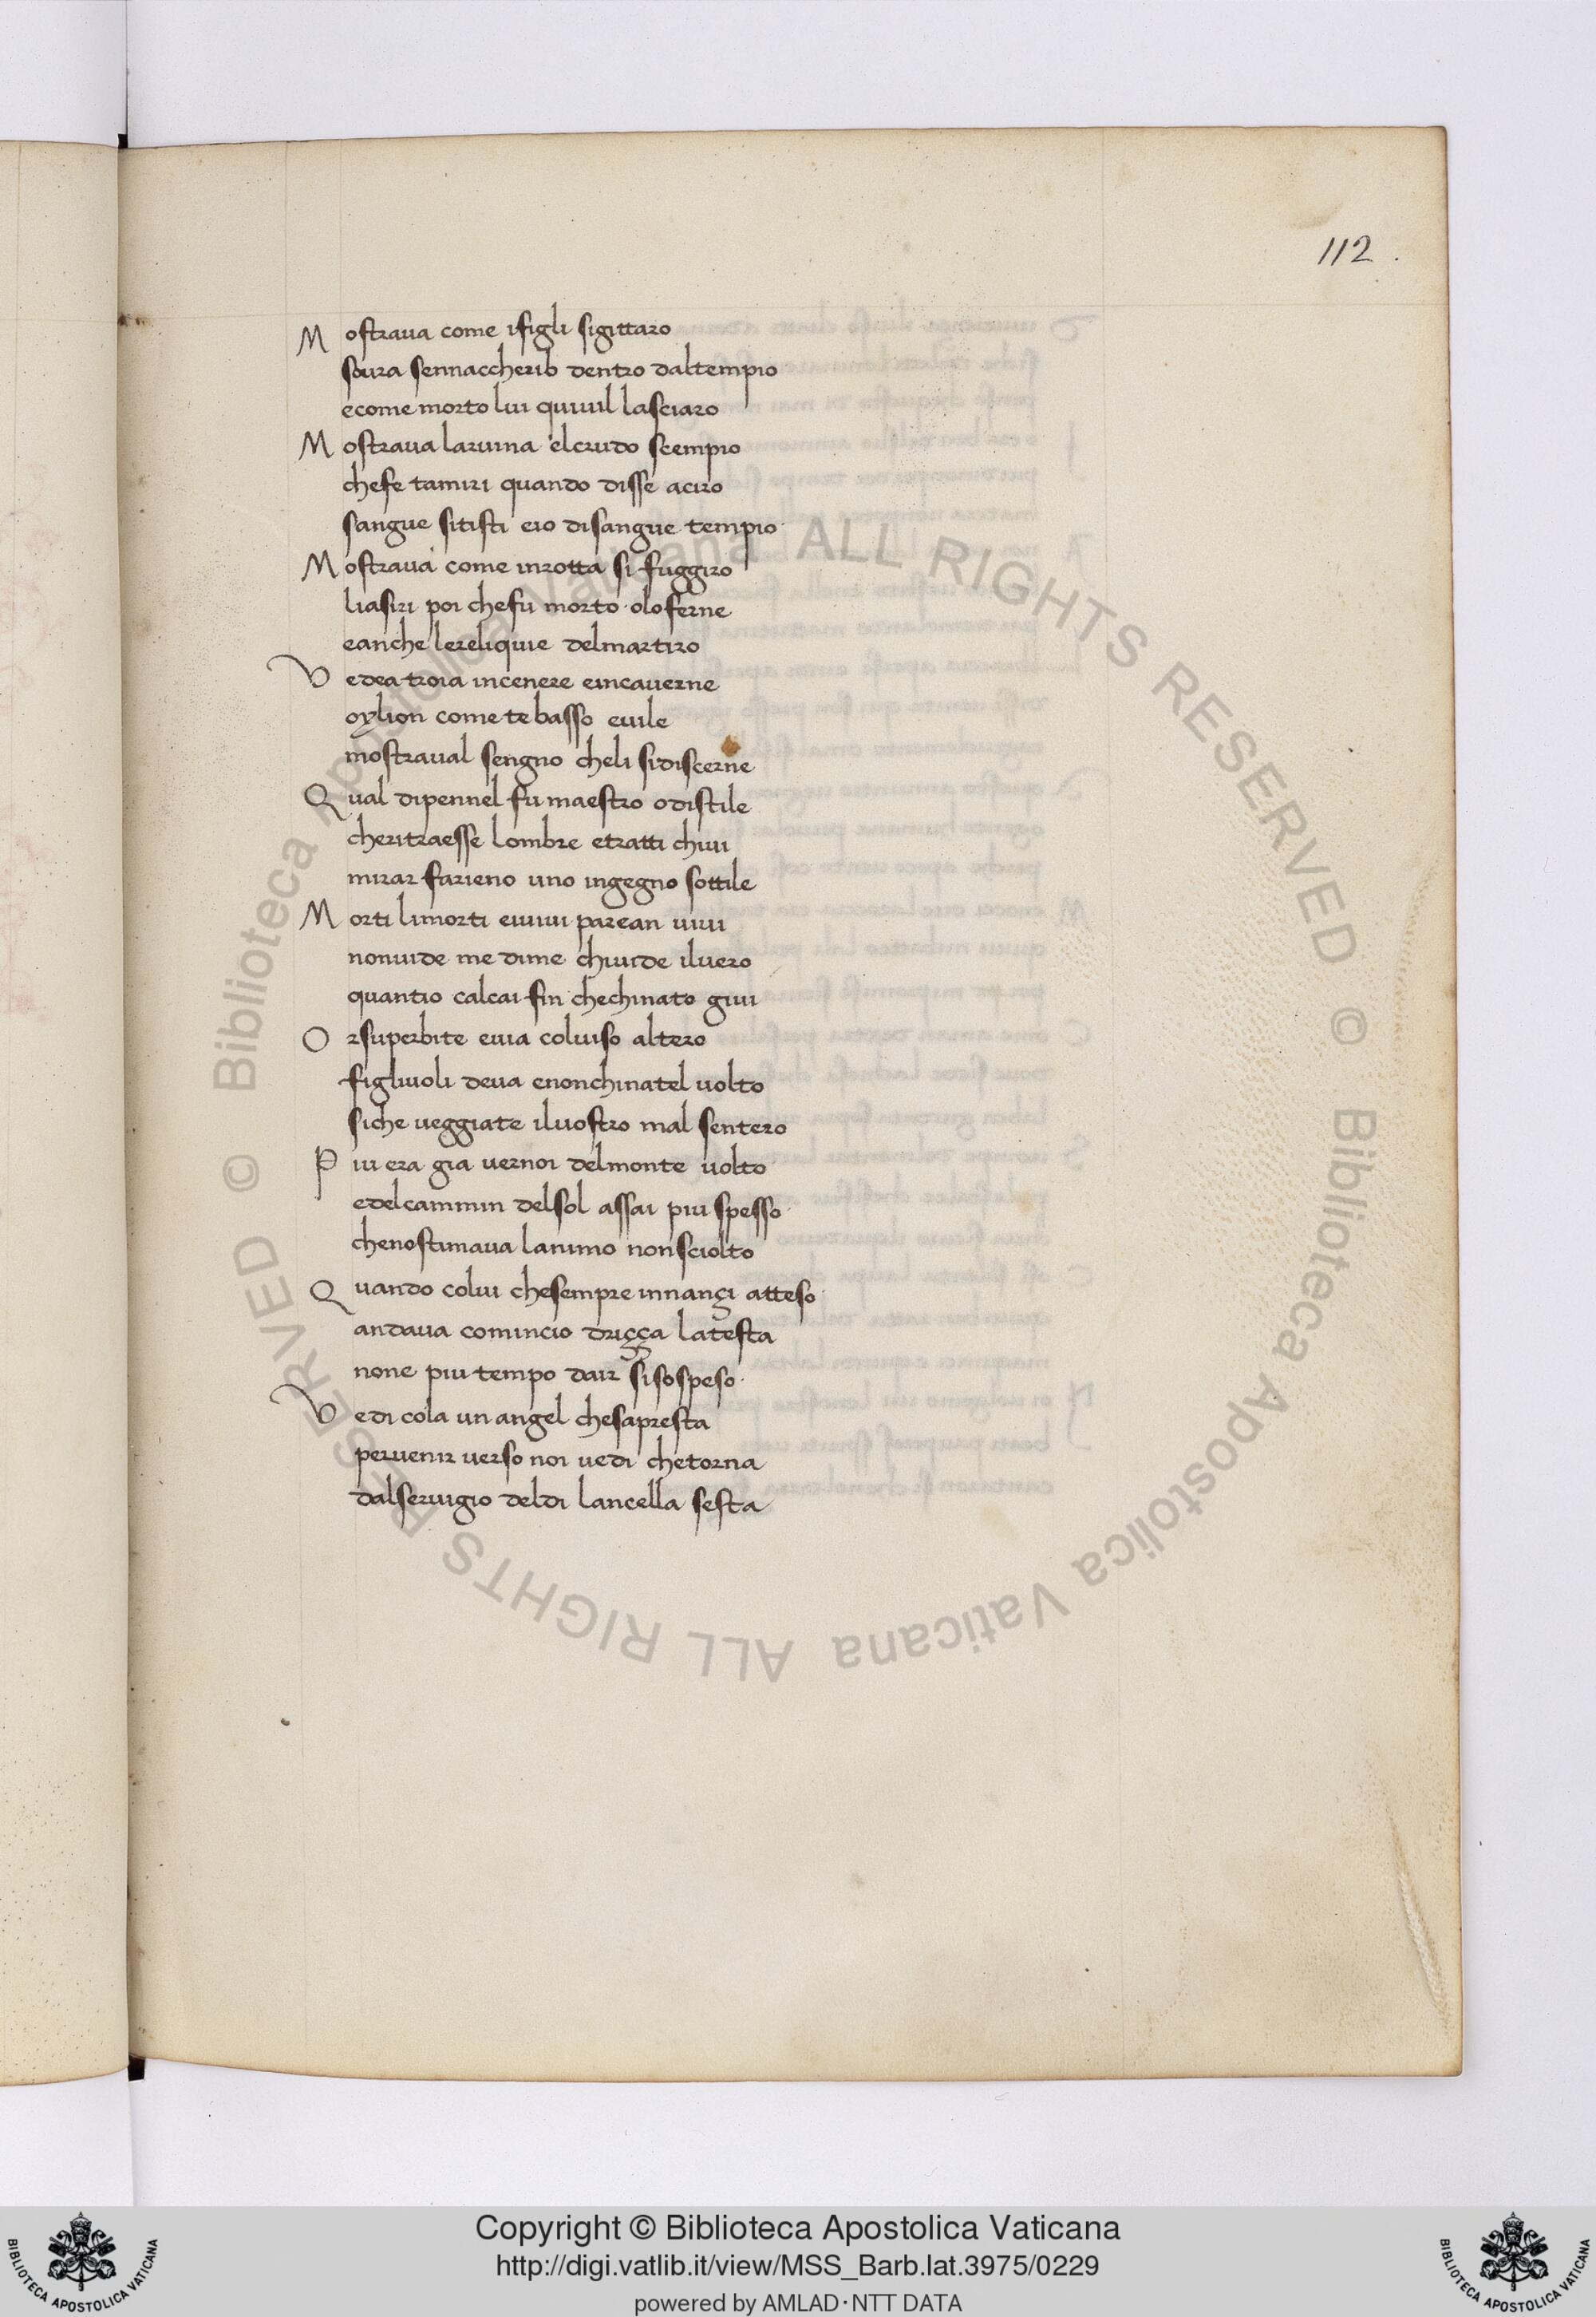 112.
Mostraua come ifigli sigittaro
soura sennaccherib dentro daltempio
ecome morto lui quiuil lasciaro
Mostraua laruina elcrudo scempio
chefe tamiri quando disse aciro
sangue sitisti eio disangue tempio
Mostraua come inrotta si fuggiro
liasiri poi chefu morto oloferne
eanche lereliquie delmartiro
Vedea troia incenere eincauerne
oylion come te basso euile
mostraual sengno cheli sidiscerne
Qual dipennel fu maestro odistile
cheritraesse lombre etratti chiui
mirar farieno uno ingegno sottile
Morti limorti eiuiui parean uiui
nonuide me dime chiuide iluero
quantio calcai fin chechinato giui
Orsuperbite euia coluiso altero
figliuoli deua enonchinatel uolto
siche ueggiate iluostro mal sentero
Piu era gia uernoi delmonte uolto
edelcammin delsol assai piu spesso
chenostimaua lanimo nonsciolto
Quando colui chesempre innançi atteso
andaua comincio driçça latesta
none piu tempo dair sisospeso
Vedi cola un angel chesapresta
peruenir uerso noi uedi chetorna
dalseruigio deldi lancella sesta
© Biblioteca Apostolica Vaticana ALL RIGHTS RESERVED © Biblioteca Apostolica Vaticana ALL RIGHTS RESERVED
Copyright © Biblioteca Apostolica Vaticana
http://digi.vatlib.it/view/MSS_Barb.lat.3975/0229
powered by AMLAD·NTT DATA
BIBLIOTECA APOSTOLICA VATICANA
BIBLIOTECA APOSTOLICA VATICANA